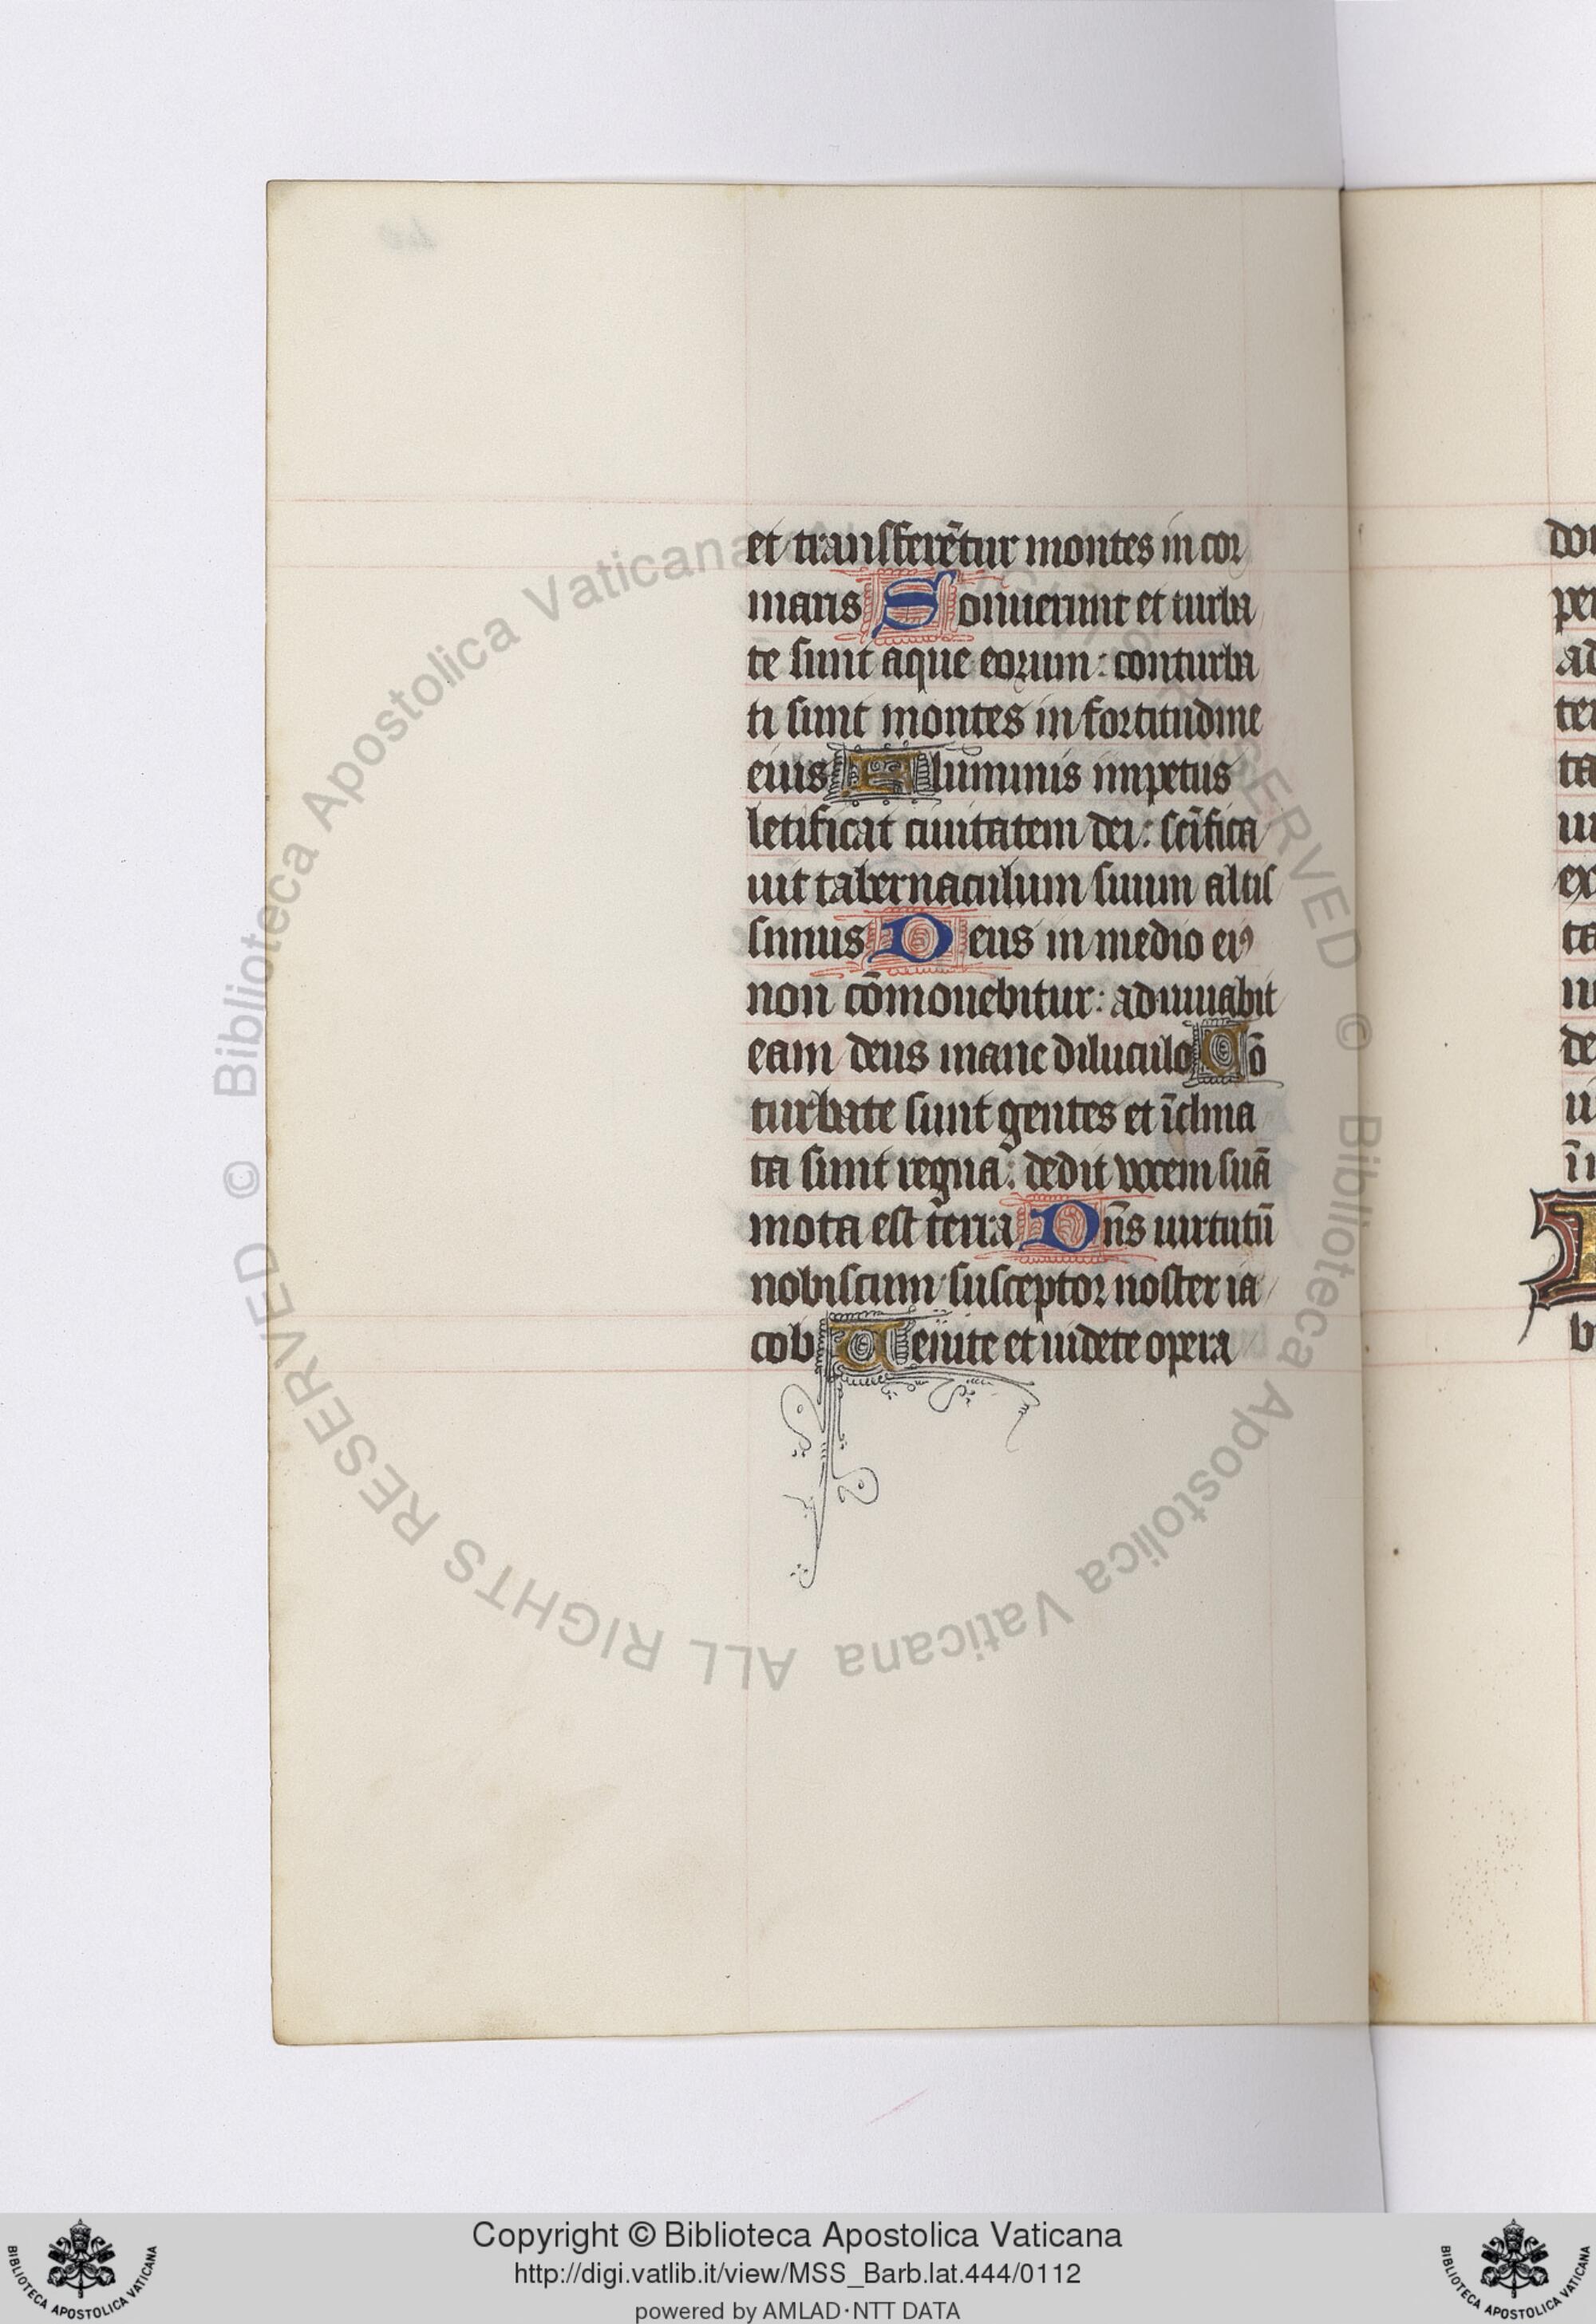 et transferētur montes in cor
maris Sonuerunt et turba
te sunt aque eorum: conturba
ti sunt montes in fortitudine
eius Fluminis impetus
letificat ciuitatem dei: scīfica
uit tabernaculum suum altis
simus Deus in medio eiꝰ
non cōmouebitur: adiuuabit
eam deus mane diluculo Cō
turbate sunt gentes et īclina
ta sunt regna: dedit uocem suā
mota est terra Dn̄s uirtutū
nobiscum susceptor noster ia
cob Uenite et uidete opera
© Biblioteca Apostolica Vaticana ALL RIGHTS RESERVED
© Biblioteca Apostolica Vaticana ALL RIGHTS RESERVED
Copyright © Biblioteca Apostolica Vaticana
http://digi.vatlib.it/view/MSS_Barb.lat.444/0112
powered by AMLAD·NTT DATA
BIBLIOTECA APOSTOLICA VATICANA
BIBLIOTECA APOSTOLICA VATICANA